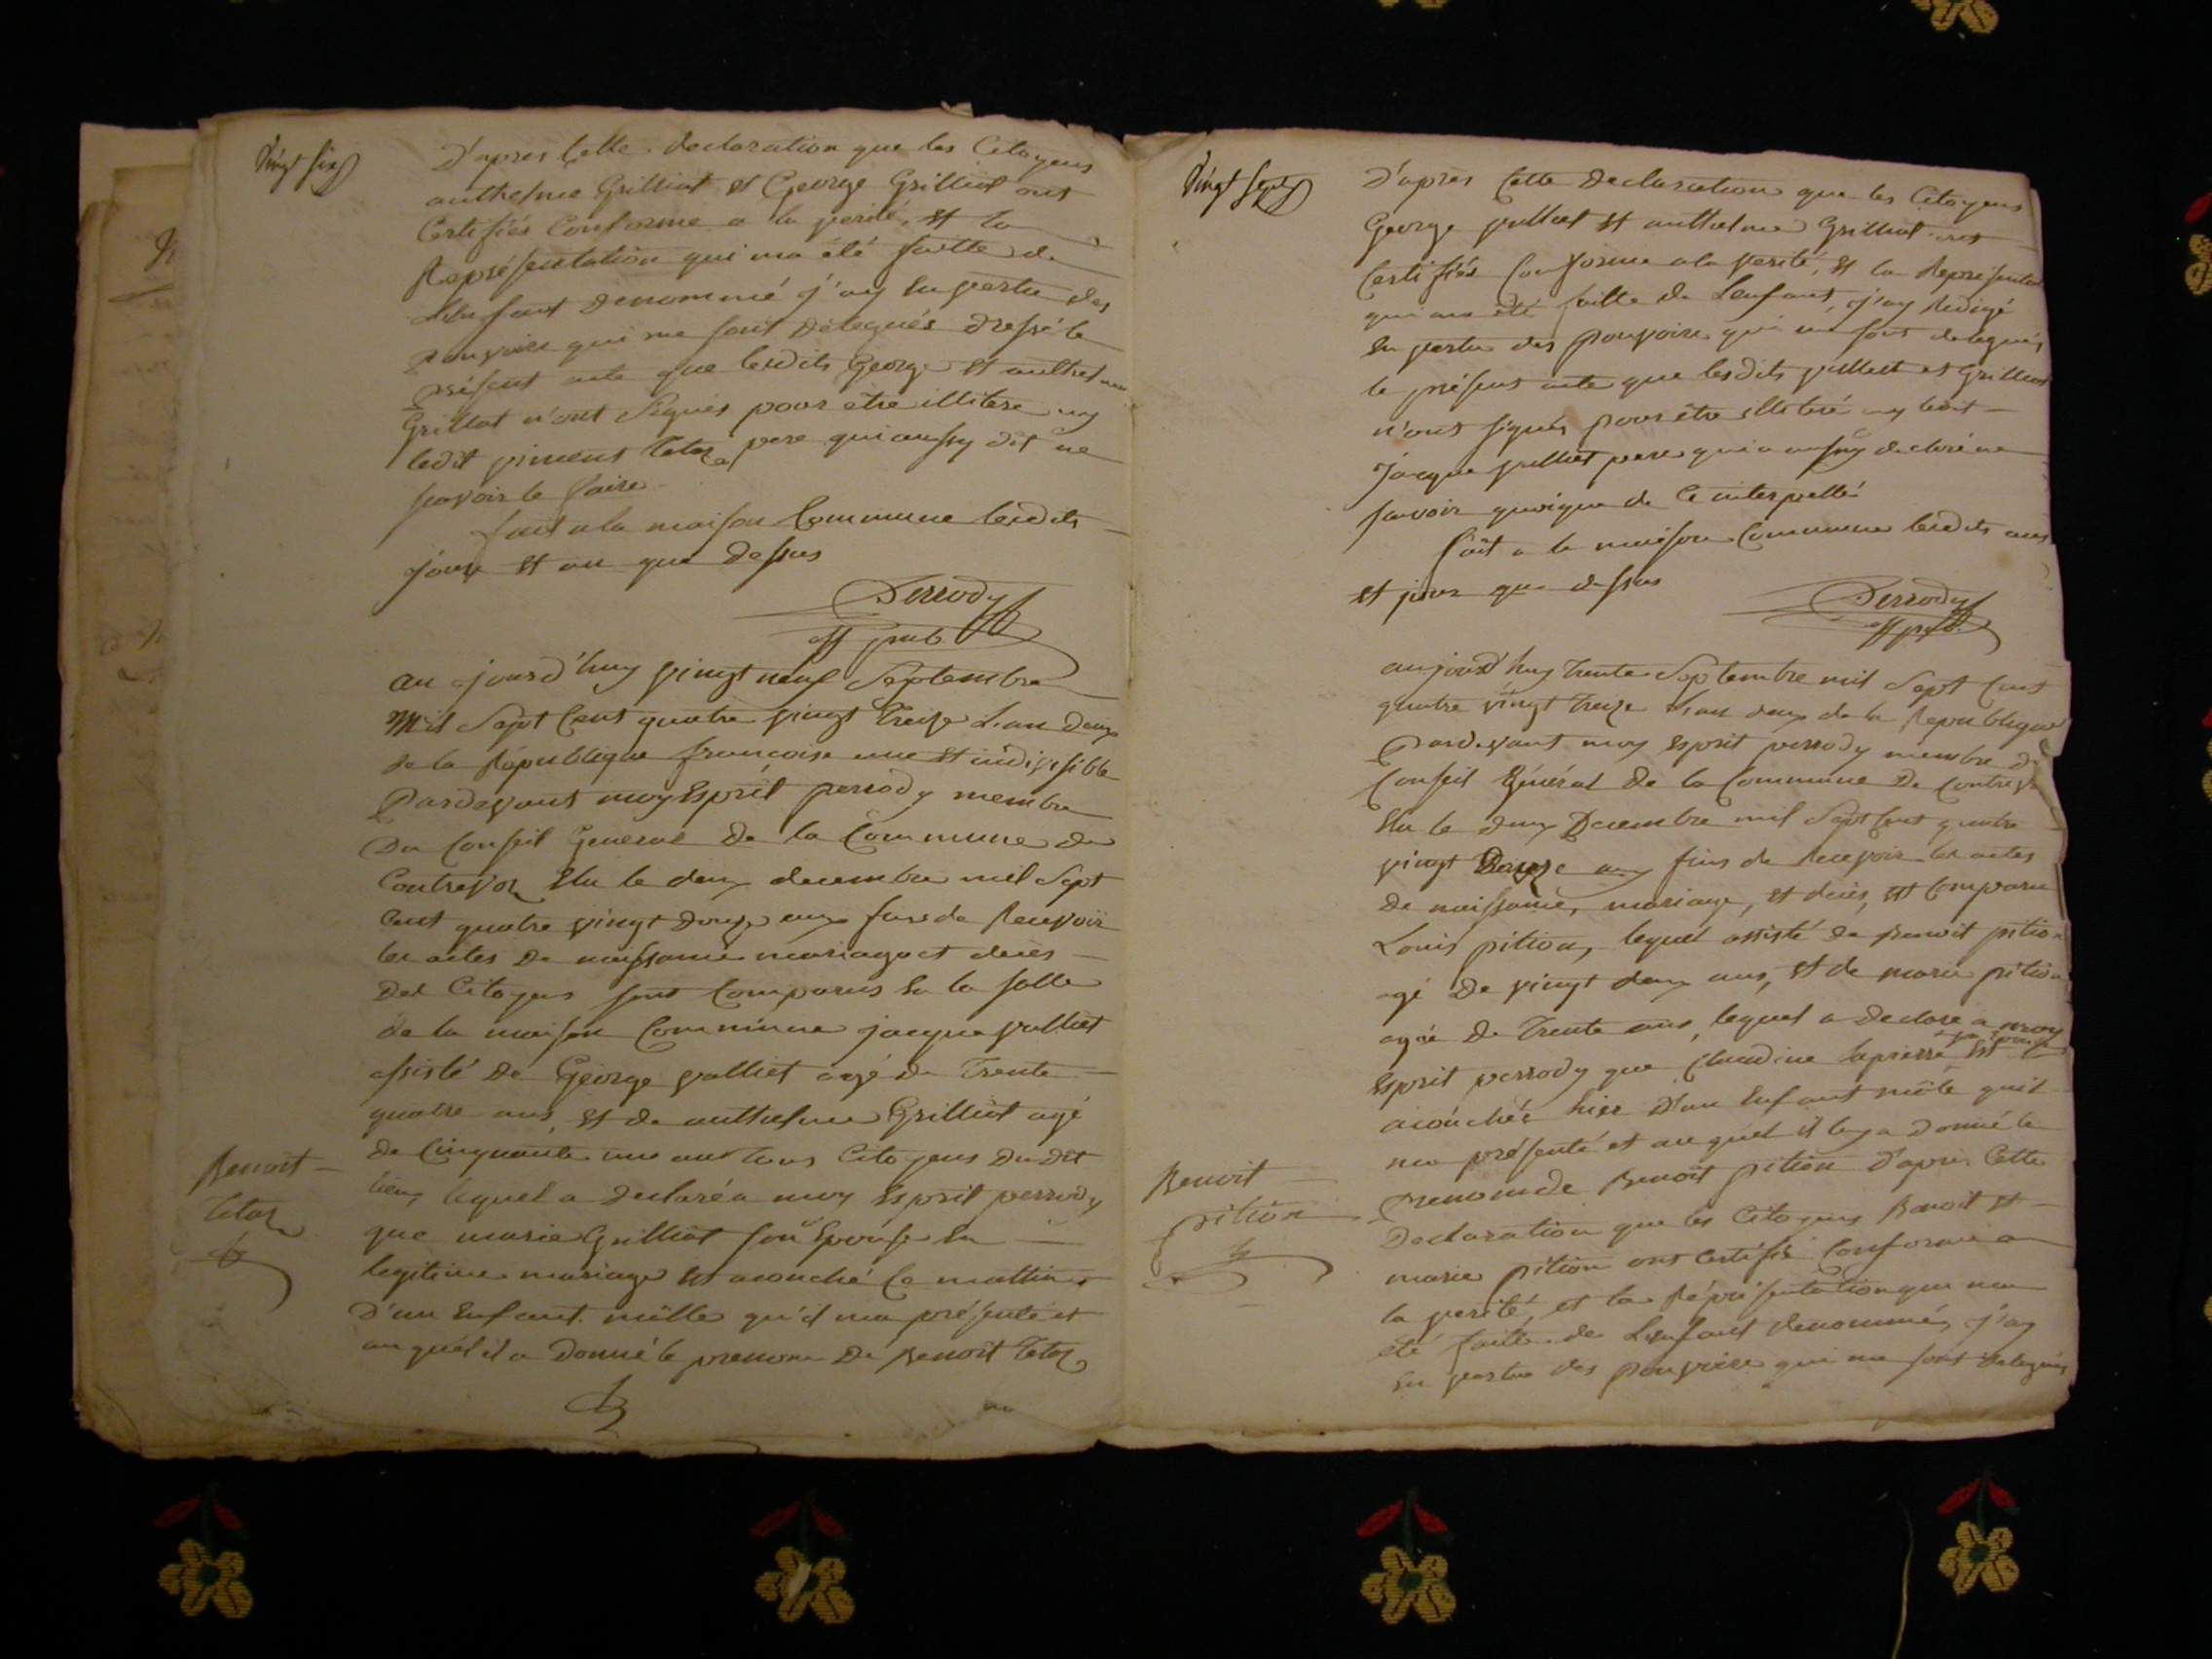 Vingt six
D'apres Cette declaration que les Citoyens
anthelme Grilliat et George Grilliat ont
Certifiés Conforme a la verité, et la
Représentation qui ma été faitte de
L'enfant denommé j'ay En vertu des
Pouvoirs qui me sont Délegués Dressé le
présent acte que lesdits George et anthelme
Grilliat n'ont Signés pour être illitere ny
ledit vincent père qui aussy dit ne
savoir le faire
fait a la maison Commune lesdits
jour et an que dessus
Perrody
off pub.
aujourd'huy vingt neuf Septembre
Mil Sept Cent quatre vingt Treize L'an Deux
de la République francoise une et indivisible
Pardevant moy Esprit perrody membre
Du Conseil General De la Commune de
Contrevoz Elu le deux decembre mil Sept
Cent quatre vingt Douze aux fins de Recevoir
les actes De naissance mariage et decès
Des Citoyens sont Comparus En la salle
de la maison Commune jacque
assisté De George agé de Trente
quatre ans, et de anthelme Grilliat agé
de Cinquante une ans tous Citoyens Du dit
lieu, lequel a declaré a moy Esprit perrody
que marie Grilliat son Epouse En
legitime mariage Est acouché Ce mattin
D'un Enfant mâlle qu'il ma présenté et
auquél il a Donné le prenom De Benoit
Benoit
Vingt Sept
D'après Cette Declaration que les Citoyens
George et anthelme Grilliat ont
Certifiés Conforme a la verité, et la Représentation
qui ma été faitte de Lenfant, j'ay Redigé
En vertu des pouvoirs qui me sont delegués
le présent acte que lesdits et Grilliat
n'ont signés pour être illiteré ny ledit
Jacque pere qui a aussy declaré ne
savoir quoique de Ce interpellé
fait a la maison Commune lesdits ans
et jour que dessus
Perrody
off pub.
aujourd'huy Trente Septembre mil Sept Cent
quatre vingt Treize L'an deux de la Republique
Pardevant moy Esprit perrody membre du
Conseil Général De la Commune De Contrevoz
Elu le deux Decembre mil Sept Cent quatre
vingt Douze aux fins de Recevoir les actes
De naissance, mariage, et decès, est Comparu
Louis pition, lequel assisté de Benoit pition
agé De vingt deux ans, et de marie pition
agée De Trente ans, lequel a declaré a moy
Esprit perrody que Claudine Lapierre sa épouse est
acouchée hier D'un Enfant mâle quil
ma présenté et auquel il luy a Donné le
prenom de Benoit pition D'après Cette
Declaration que les Citoyens Benoit et
marie pition ont Certifié Conforme a
la verité, et la Répresentation qui ma
été faitte de Lenfant denommé, j'ay
En vertu des pouvoirs qui me sont delegués
Benoit
pition